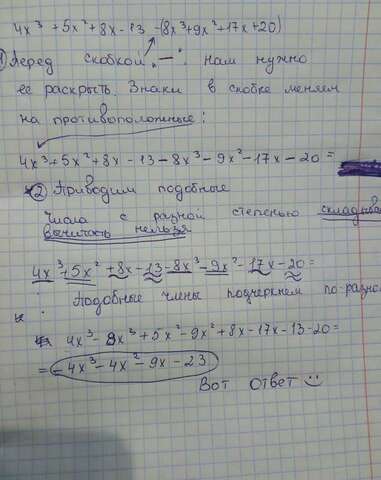 4x³ + 5x² + 8x - 13 - (8x³ + 9x² + 17x + 20)
1 Перед скобкой „—". нам нужно
её раскрыть. Знаки в скобке меняем
на противоположные:
4x³ + 5x² + 8x - 13 - 8x³ - 9x² - 17x - 20 =
2 Приводим подобные
Числа с разной степенью складыва
вычитать нельзя
4x³ + 5x² + 8x - 13 - 8x³ - 9x² - 17x - 20 =
Подобные члены подчеркнем по-разно
4x³ - 8x³ + 5x² - 9x² + 8x - 17x - 13 - 20 =
= - 4x³ - 4x² - 9x - 23
Вот ответ